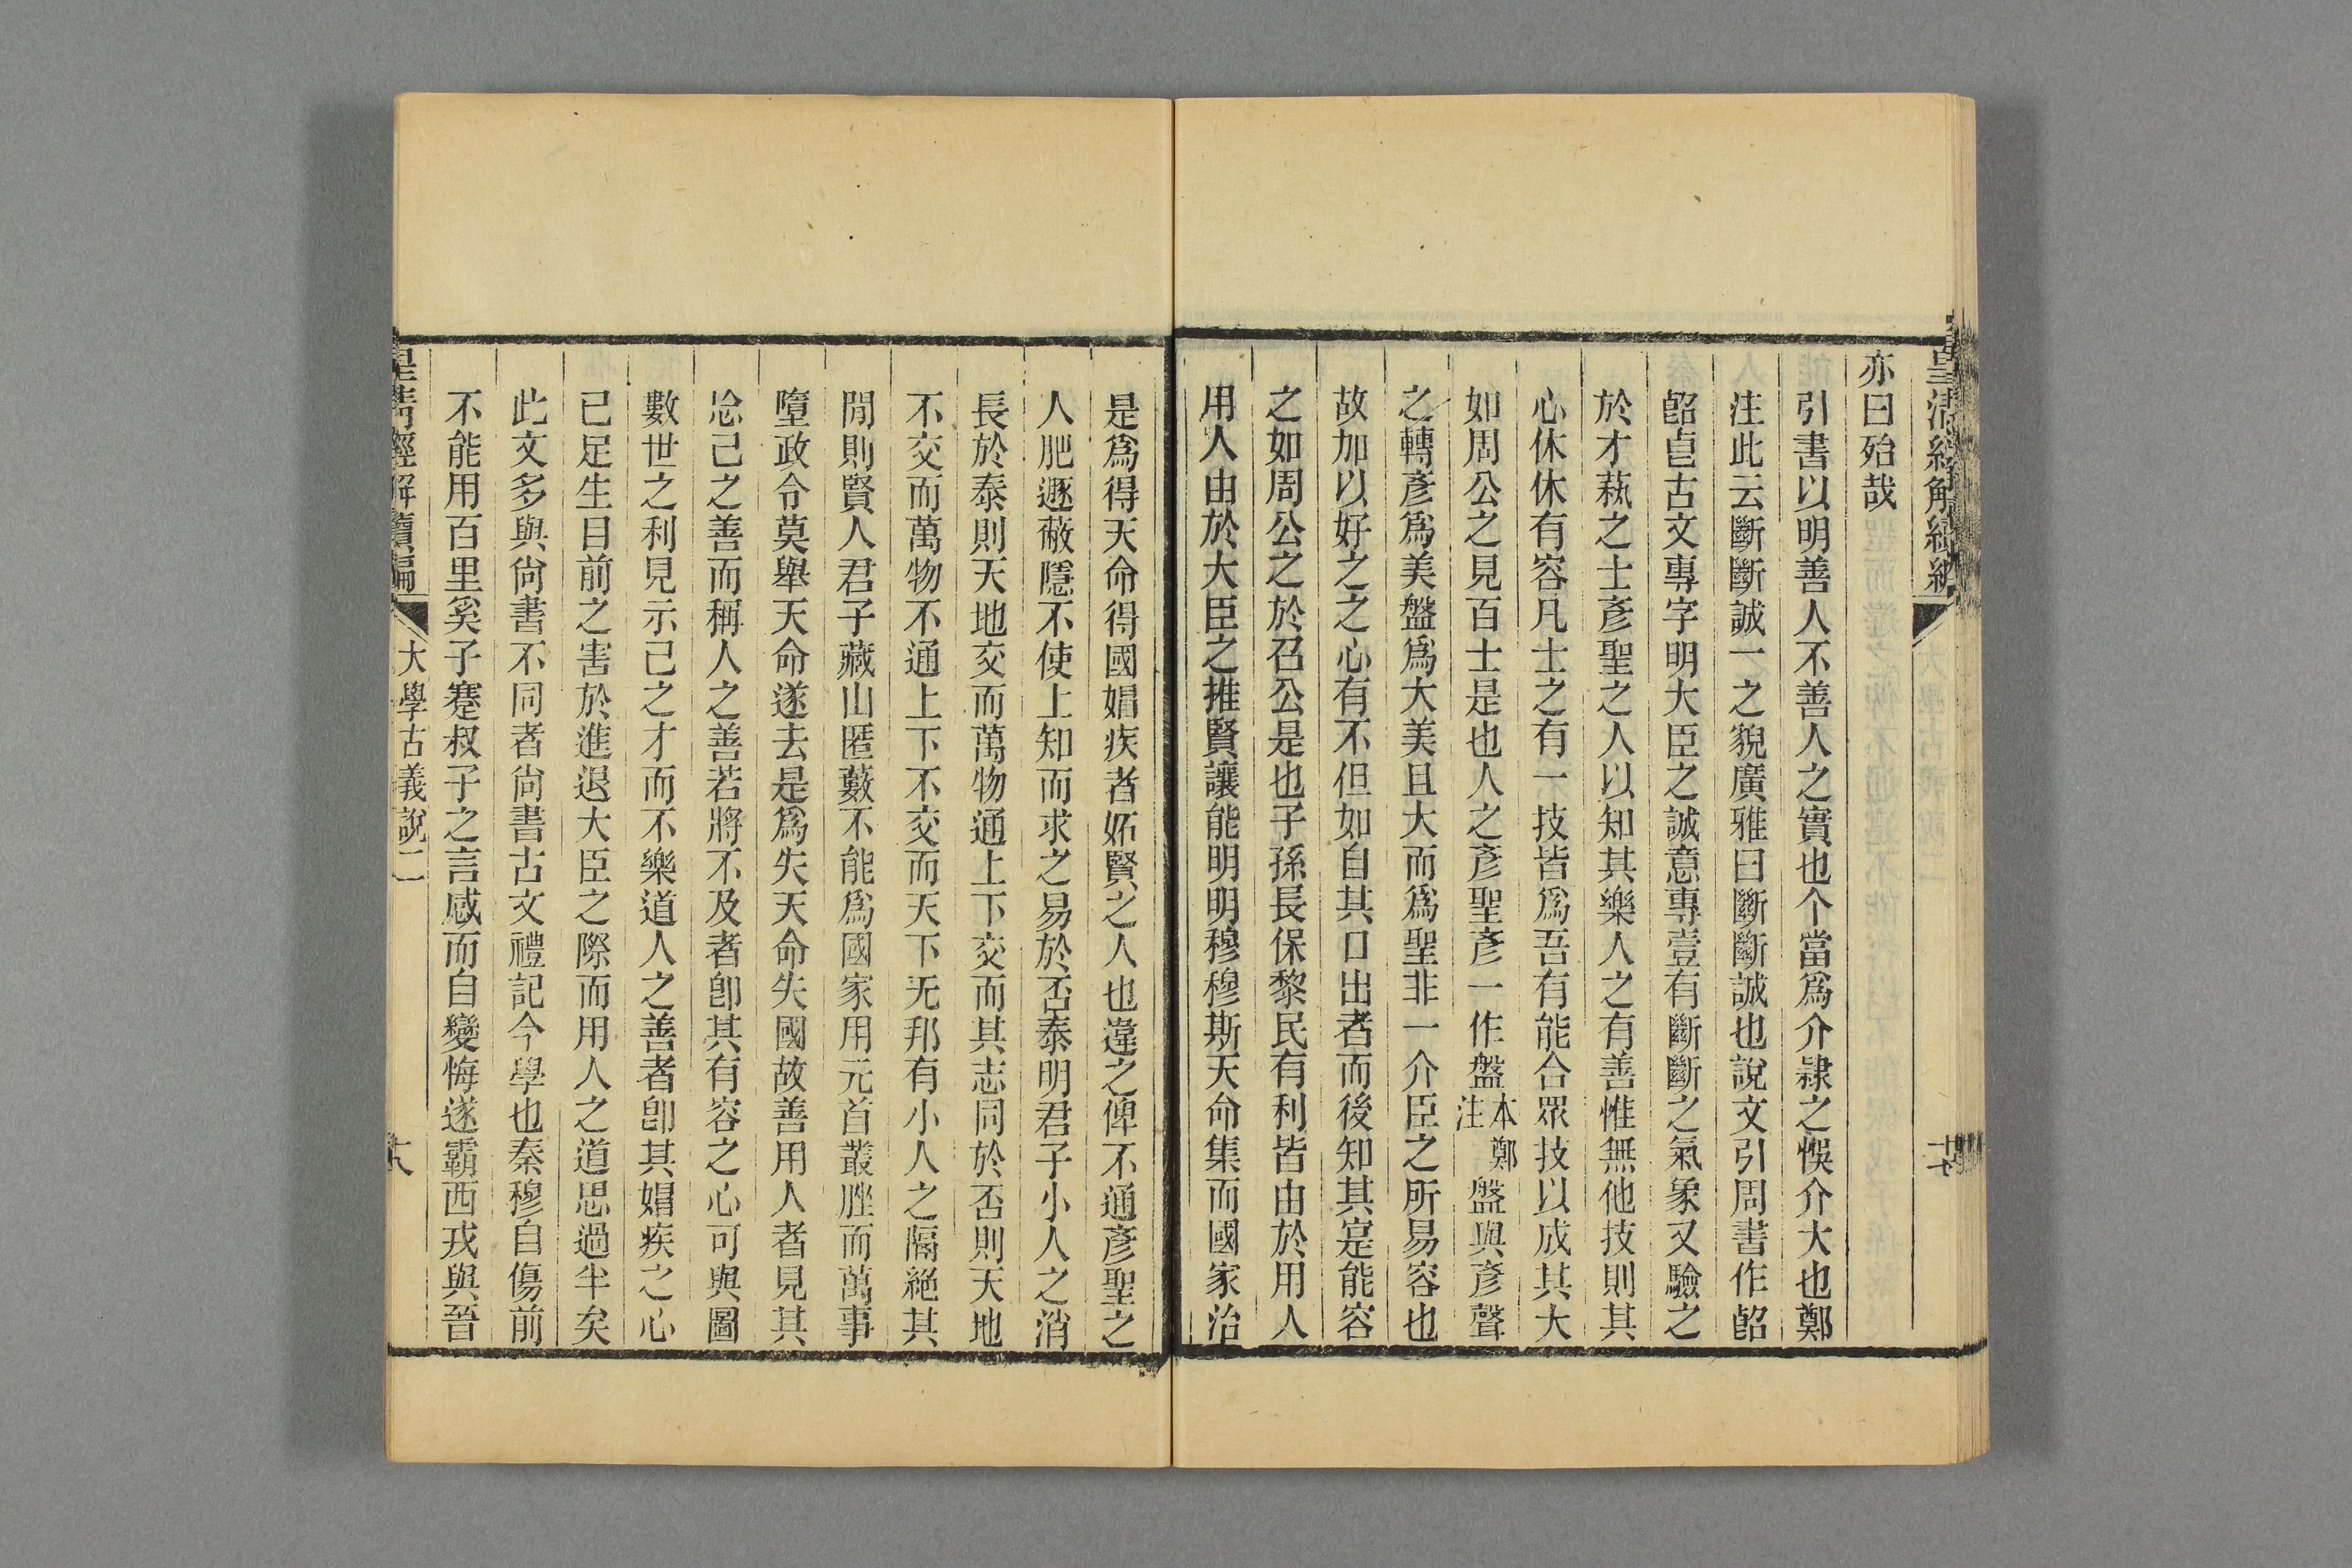 皇清經解續編
十七
亦曰殆哉
引書以明善人不善人之實也个當爲介隷之悞介大也鄭
注此云斷斷誠一之貌廣雅曰斷斷誠也說文引周書作㫁
㫁㫁古文專字明大臣之誠意專壹有斷斷之氣象又驗之
於才蓺之士彥聖之人以知其樂人之有善惟無他技則其
心休休有容凡士之有一技皆爲吾有能合眾技以成其大
如周公之見百士是也人之彥聖彥一作盤本鄭注盤與彥聲
之轉彥爲美盤爲大美且大而爲聖非一介臣之所易容也
故加以好之之心有不但如自其口出者而後知其寔能容
之如周公之於召公是也子孫長保黎民有利皆由於用人
用人由於大臣之推賢讓能明明穆穆斯天命集而國家治
是爲得天命得國媢疾者妬賢之人也違之俾不通彥聖之
人肥遯蔽隱不使上知而求之易於否泰明君子小人之消
長於泰則天地交而萬物通上下交而其志同於否則天地
不交而萬物不通上下不交而天下无邦有小人之隔絕其
閒則賢人君子藏山匿藪不能爲國家用元首叢脞而萬事
墮政令莫舉天命遂去是爲失天命失國故善用人者見其
忩己之善而稱人之善若將不及者卽其有容之心可與圖
數世之利見示己之才而不樂道人之善者卽其媢疾之心
已足生目前之害於進退大臣之際而用人之道思過半矣
此文多與尙書不同者尙書古文禮記今學也秦穆自傷前
不能用百里奚子蹇叔子之言感而自變悔遂霸西戎與晉
皇清經解續編
大學古義說二
十八